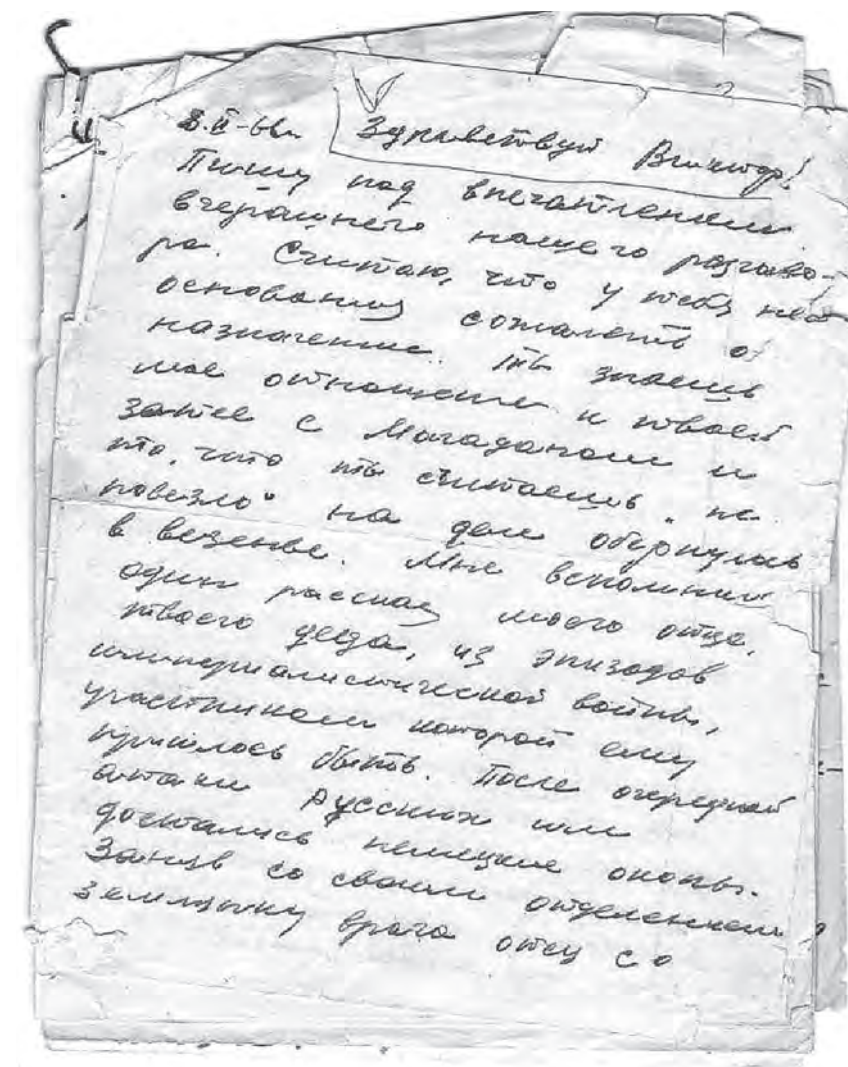 8.II-66г. Здравствуй Виктор!
Пишу под впечатлением
вчерашнего нашего разгово-
ра. Считаю, что у тебя нет
основания сожалеть о
назначении. Ты знаешь
мое отношение к твоей
затее с Магаданом и
то, что ты считаешь „не
повезло" на деле обернулось
в везенье. Мне вспомнился
один рассказ моего отца,
твоего деда, из эпизодов
империалистической войны,
участником которой ему
пришлось быть. После очередной
атаки русских им
достались немецкие окопы.
Заняв со своим отделением
землянку врага отец со